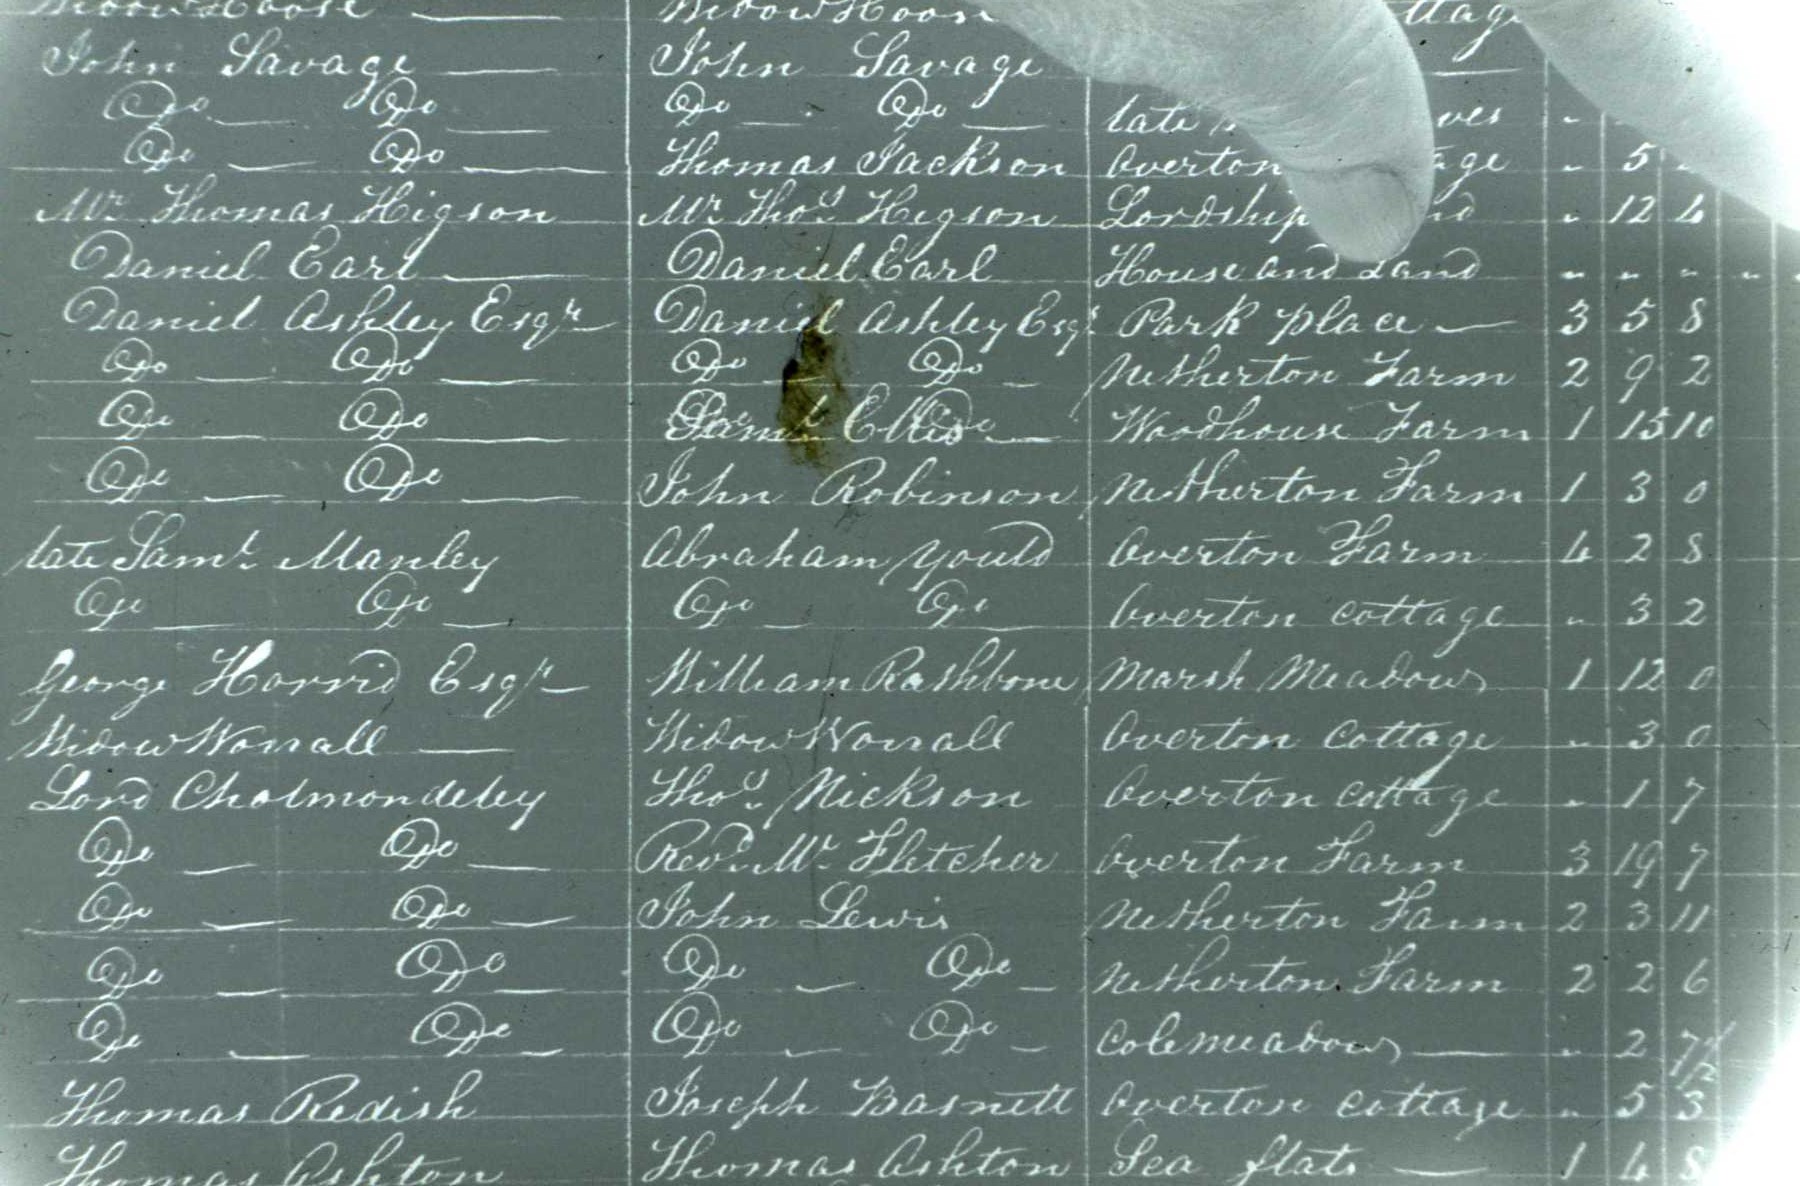 Widow Hoose Widow Hoose
John Savage John Savage
Do Do Do Do late
Do Do Thomas Jackson Overton " 5
Mr Thomas Higson Mr Thos Higson Lordship " 12 4
Daniel Earl Daniel Earl House and Land " " " "
Daniel Ashley Esqr Daniel Ashley Esqr Park place 3 5 8
Do Do Do Do Netherton Farm 2 9 2
Do Do Saml Ellis Woodhouse Farm 1 15 10
Do Do John Robinson Netherton Farm 1 3 0
late Saml Manley Abraham Yould Overton Farm 4 2 8
Do Do Do Do Overton cottage " 3 2
George Horrid Esqr William Rashbone Marsh Meadows 1 12 0
Widow Worrall Widow Worrall Overton Cottage " 3 0
Lord Cholmondeley Thos Nickson Overton cottage " 1 7
Do Do Revd Mr Fletcher Overton Farm 3 19 7
Do Do John Lewis Netherton Farm 2 3 11
Do Do Do Do Netherton Farm 2 2 6
Do Do Do Do Colemeadows " 2 7 1/2
Thomas Redish Joseph Basnett Overton cottage " 5 3
Thomas Ashton Thomas Ashton Sea flats 1 4 8